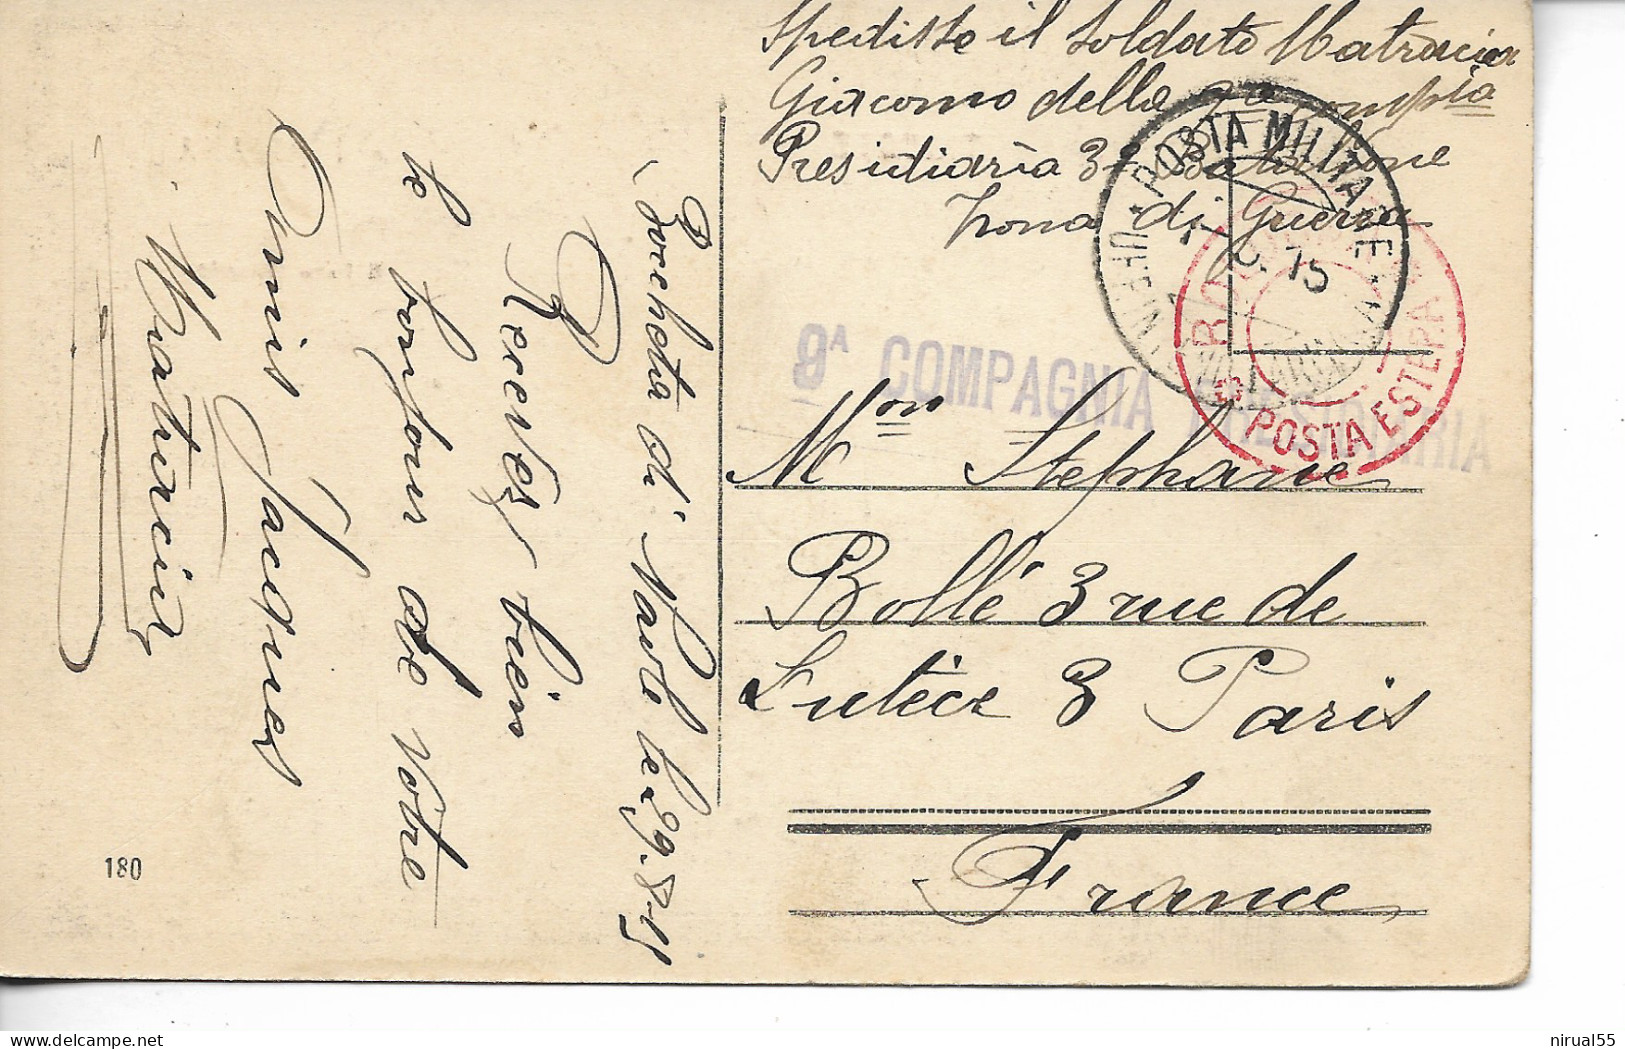 Spedisce il soldato Matracia
Giacomo della 9a Compia
Presidiaria 3° Battaglione
Zona di Guerra
POSTA MILITARE
9. 15
BOLOGNA
POSTA ESTERA
9A COMPAGNIA PRESIDIARIA
Mon Stephane
Bollé 3 rue de
Lutèce 3 Paris
France
Rocchetta di Navole le 29.8-15
Recevez bien
le bonjour de votre
Amis Jacques
Matracia
180
nirual55